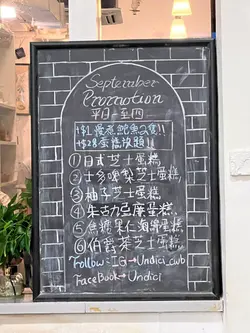 September
Promotion
平日一至四
$28蛋糕放題!!
①日式芝士蛋糕
②士多啤梨芝士蛋糕
③柚子芝士蛋糕
④朱古力豆腐蛋糕!!
⑤焦糖果仁海綿蛋糕!!
⑥伯爵茶芝士蛋糕
Follow:IG→Undici_cwb
FaceBook→Undici